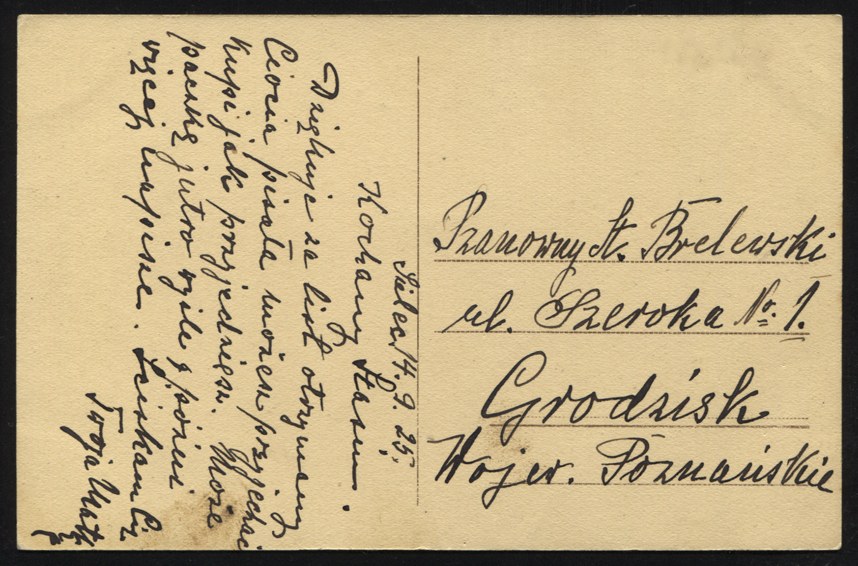 14. 9. 25.
Kochany Stasiu.
Dziękuje za list otrzymany
Ciocia pisała możesz przyjechać
Kupi jak przyjedziesz. Może
paczkę jutro wyśle
więcej napisze. Ściskam Cię
Twoja Matk
Szanowny St. Brelewski
ul. Szeroka No. 1.
Grodzisk
Wojew. Poznańskie